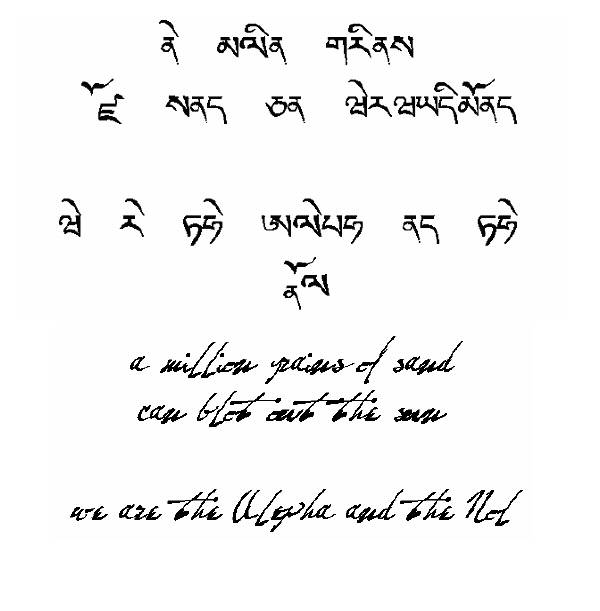 ནེ མལིན གརིནས
སནད ཅན ཝེརཝཡདིམོནད
ཝེ རེ ཏཧེ ཨལེཔཧ ནད ཏཧེ
ནོལ
a million grains of sand
can blot out the sun
we are the Alepha and the Nol